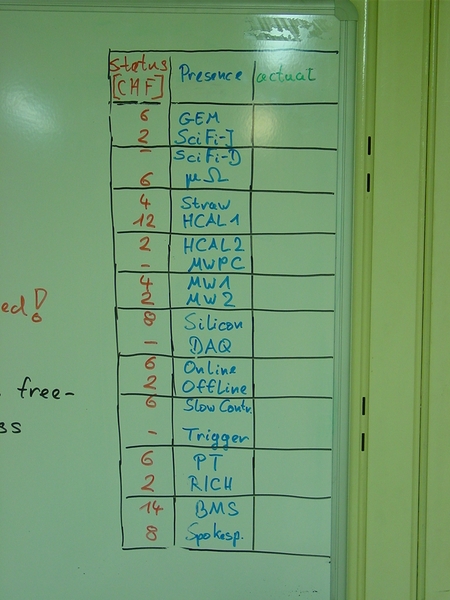 Status Presence actual
[CHF]
6 GEM
2 SciFi-I
- SciFi-D
6 μΩ
4 Straw
12 HCAL1
2 HCAL2
- MWPC
4 MW1
2 MW2
8 Silicon
- DAQ
6 Online
2 Offline
6 Slow Contr.
- Trigger
6 PT
2 RICH
14 BMS
8 Spokesp.
ed!
free-
ss